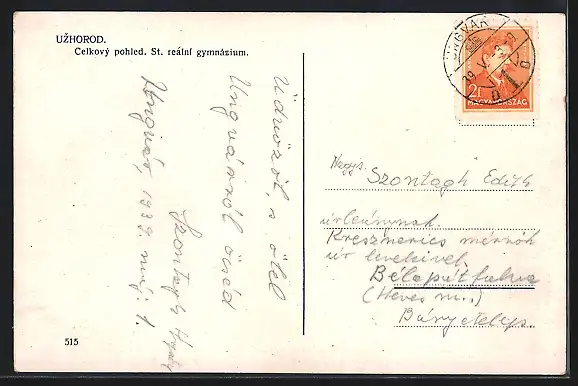 UŽHOROD.
Celkový pohled. St. reální gymnázium.
UNGVÁR
39 V
2f
MAGYARORSZÁG
Üdvözöl, s ölel
Ungvárról öcséd
Szontagh
Ungvár, 1939. máj. 1.
Nagys.
Szontagh Edith
úrleánynak
Kresznerics mérnök
úr leveleivel.
Bélapátfalva
(Heves m.)
Bányatelep.
515